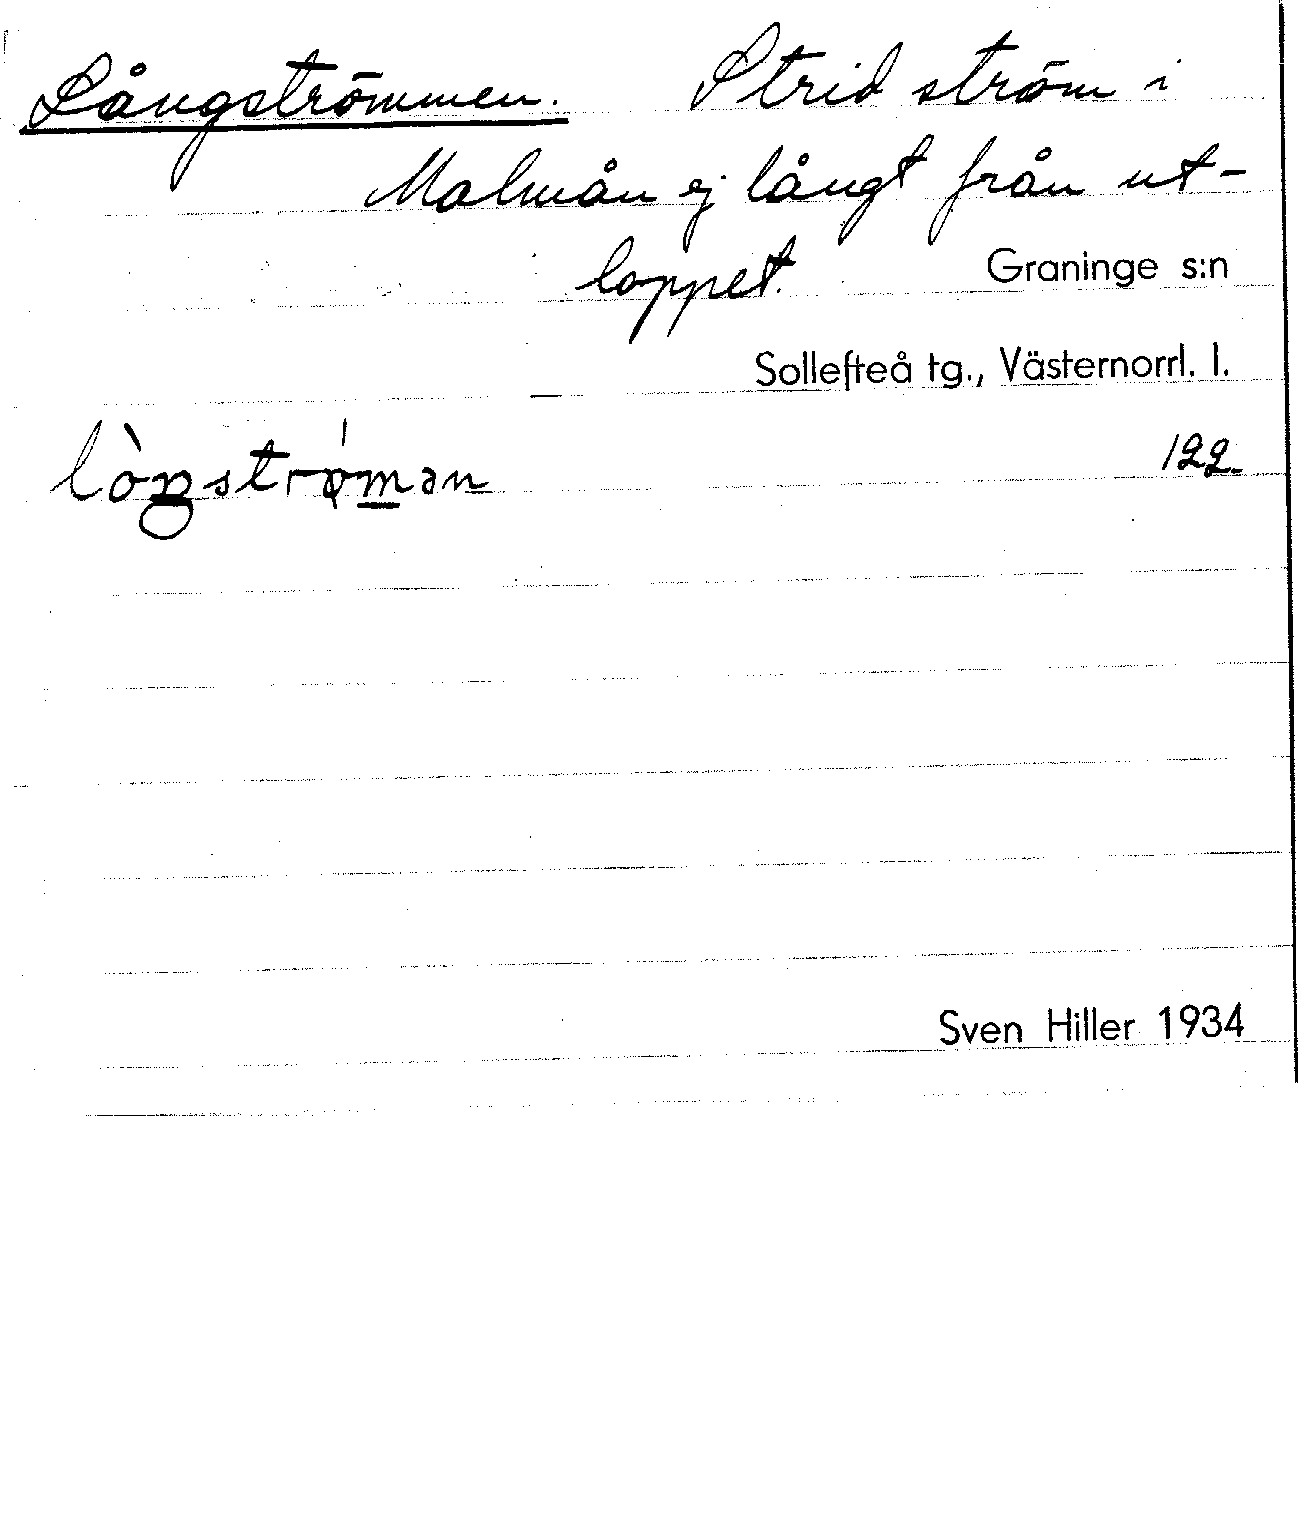 Långströmmen. Strid ström i
Malmån ej långt från ut-
loppet. Graninge s:n
Sollefteå tg., Västernorrl. l.
122.
Sven Hiller 1934